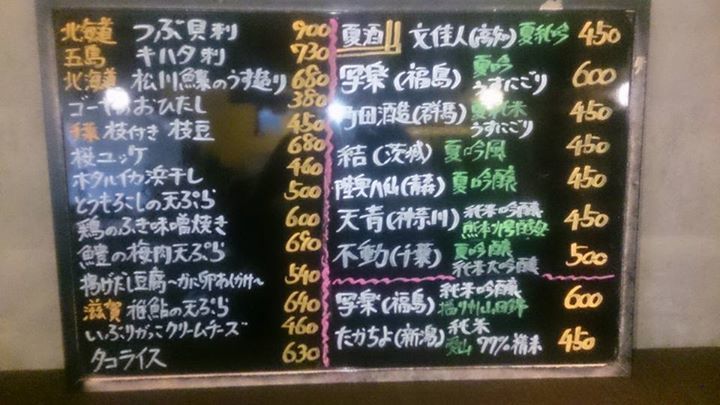 北海道 つぶ貝刺 900
五島 キハタ刺 730
北海道 松川鰈のうす造り 680
ゴーヤおひたし 380
千葉 枝付き 枝豆 450
桜ユッケ 680
ホタルイカ浜干し 460
とうもろこしの天ぷら 500
鶏のふき味噌焼き 600
鱧の梅肉天ぷら 690
揚げだし豆腐〜かに卵あんかけ〜 540
滋賀 稚鮎の天ぷら 640
いぶりがっこクリームチーズ 460
タコライス 630
夏酒!! 文佳人(高知) 夏純吟 450
写楽(福島) 夏吟 うすにごり 600
町田酒造(群馬) 夏純米 うすにごり 450
結(茨城) 夏吟風 450
陸奥八仙(青森) 夏吟醸 450
天青(神奈川) 純米吟醸 450
不動(千葉) 夏吟醸 純米大吟醸 500
写楽(福島) 純米吟醸 600
たかちよ(新潟) 純米 77%精米 450